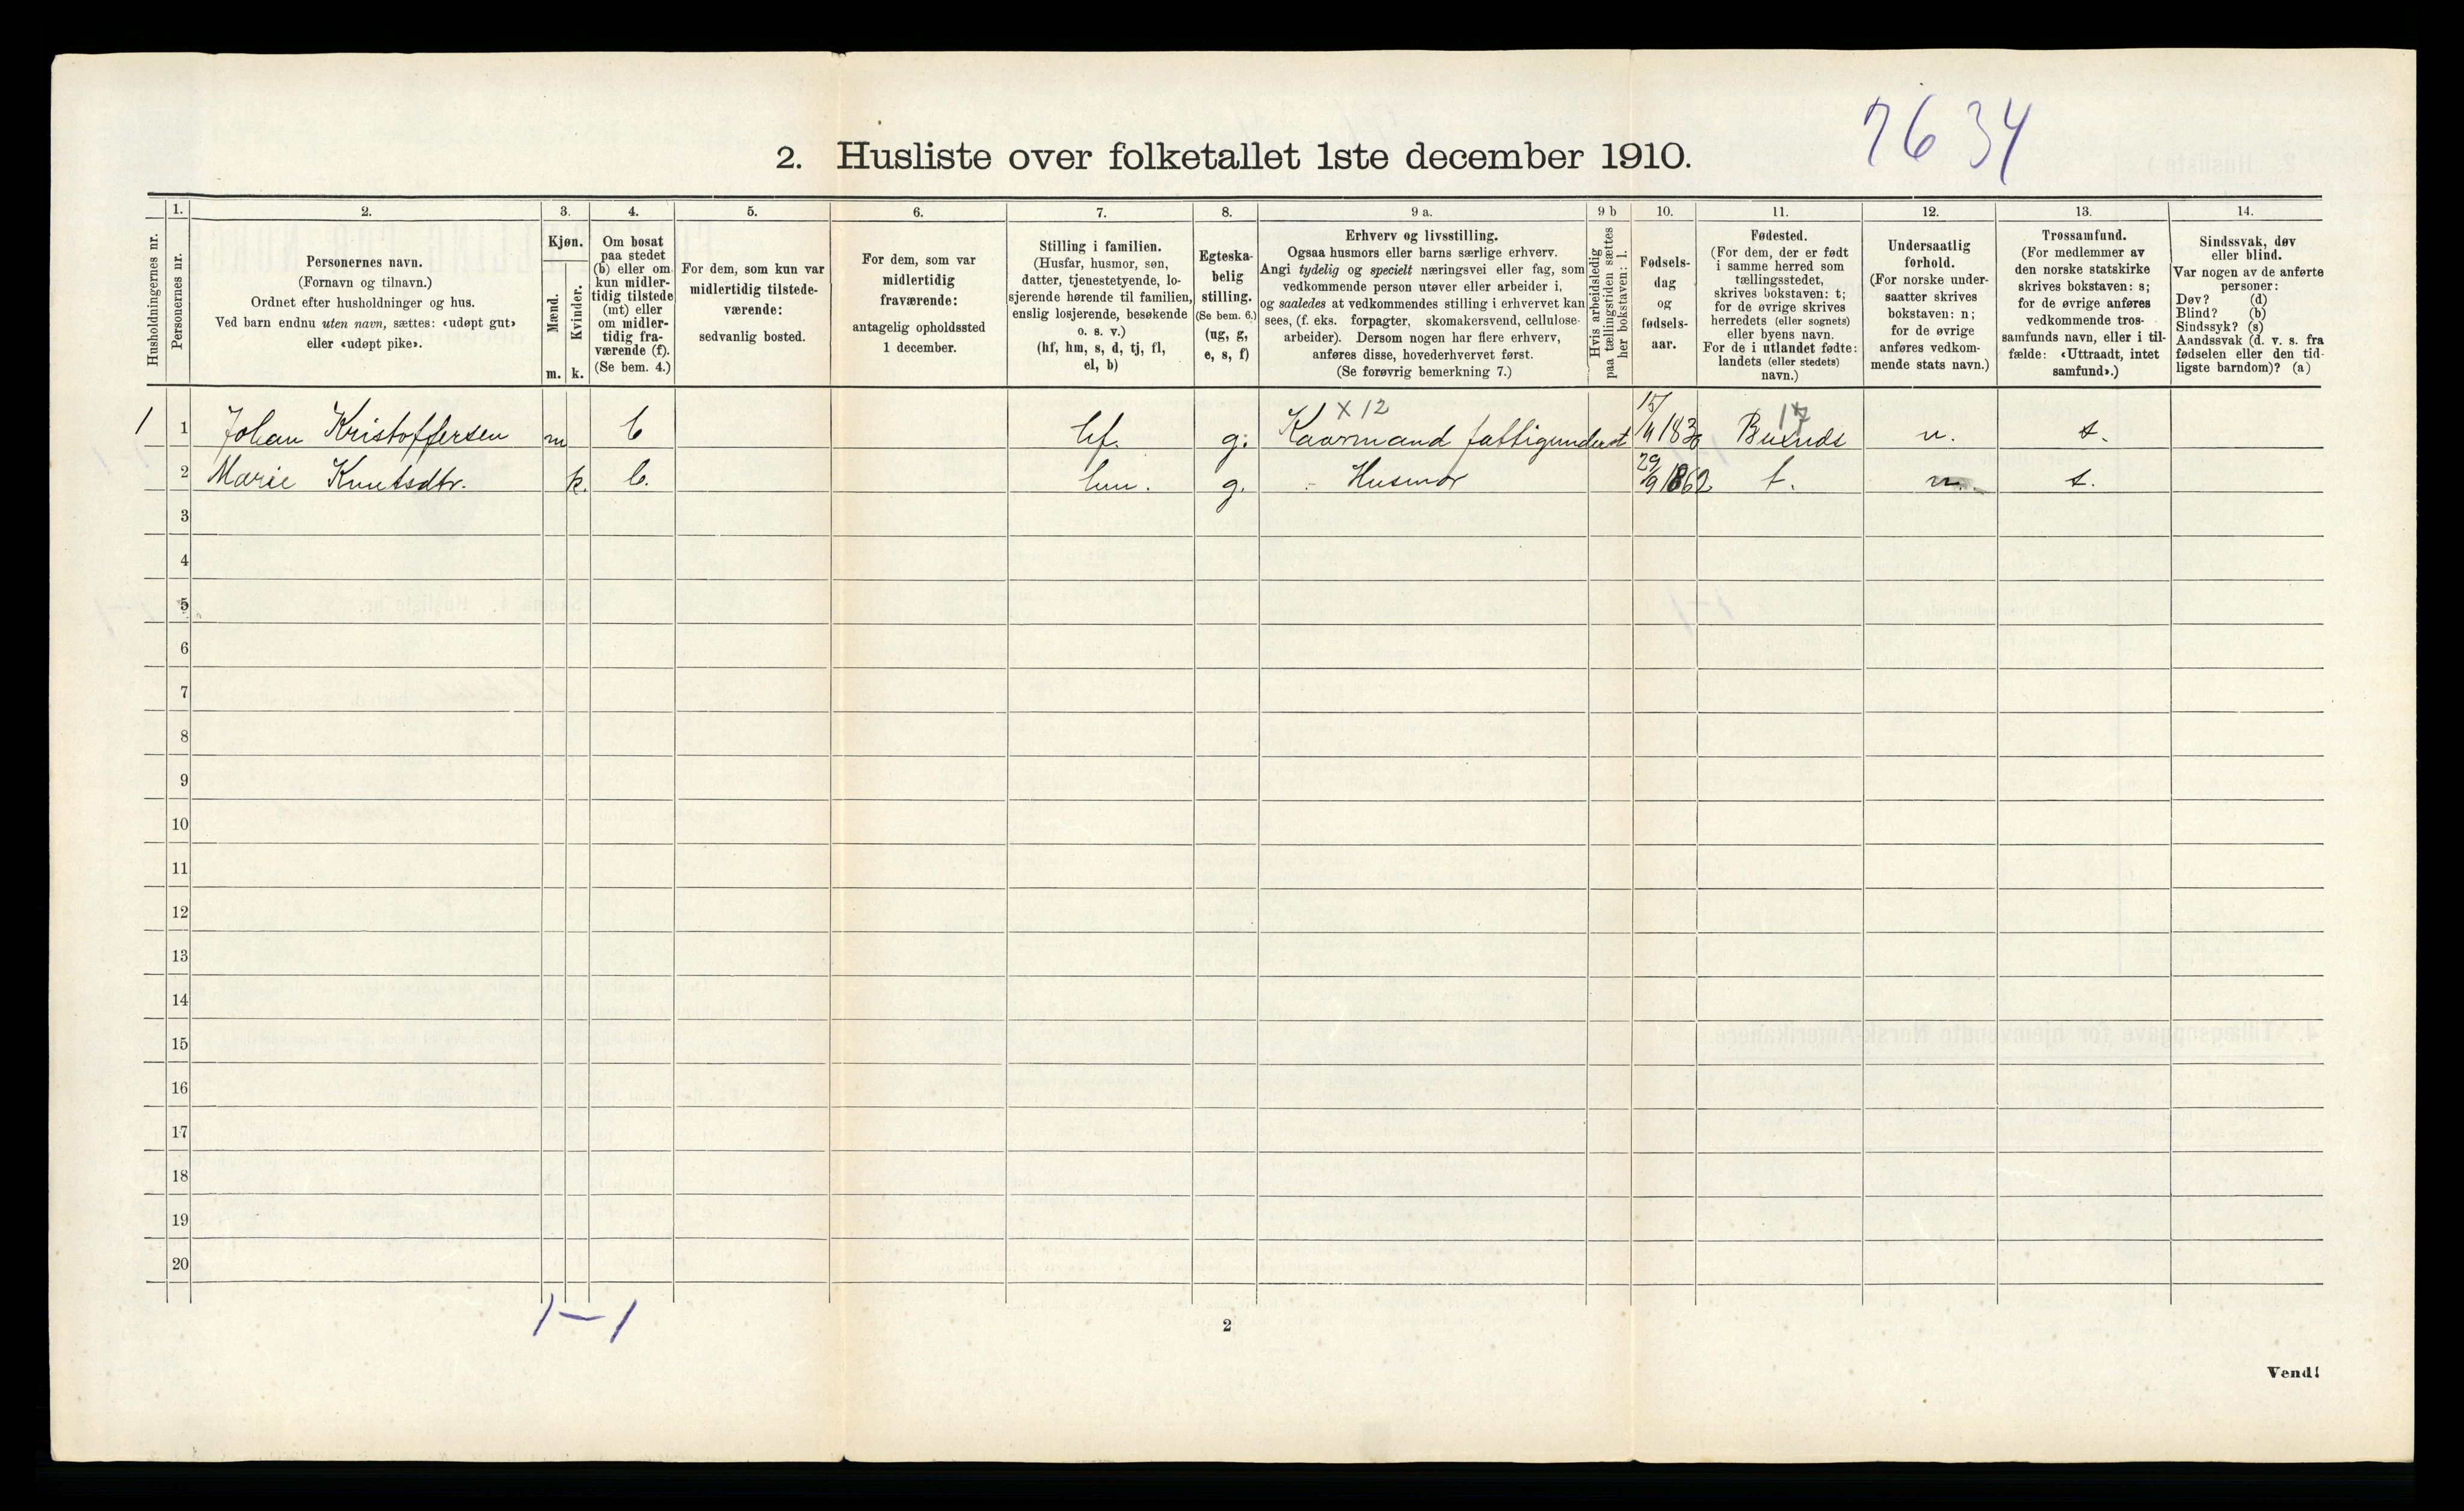 7634
2. Husliste over folketallet 1ste december 1910.
Husholdningernes nr.
1.
Personernes nr.
2.
Personernes navn.
(Fornavn og tilnavn.)
Ordnet efter husholdninger og hus.
Ved barn endnu uten navn, sættes: «udøpt gut»
eller «udøpt pike».
3.
Kjøn.
Mænd.
Kvinder.
m. k.
4.
Om bosat
paa stedet
(b) eller om
kun midler-
tidig tilstede
(mt) eller
om midler-
tidig fra-
værende (f).
(Se bem. 4.)
5.
For dem, som kun var
midlertidig tilstede-
værende:
sedvanlig bosted.
6.
For dem, som var
midlertidig
fraværende:
antagelig opholdssted
1 december.
7.
Stilling i familien.
(Husfar, husmor, søn,
datter, tjenestetyende, lo-
sjerende hørende til familien,
enslig losjerende, besøkende
o. s. v.)
(hf, hm, s, d, tj, fl,
el, b)
8.
Egteska-
belig
stilling.
(Se bem. 6.)
(ug, g,
e, s, f)
9 a.
Erhverv og livsstilling.
Ogsaa husmors eller barns særlige erhverv.
Angi tydelig og specielt næringsvei eller fag, som
vedkommende person utøver eller arbeider i,
og saaledes at vedkommendes stilling i erhvervet kan
sees, (f. eks. forpagter, skomakersvend, cellulose-
arbeider). Dersom nogen har flere erhverv,
anføres disse, hovederhvervet først.
(Se forøvrig bemerkning 7.)
9 b
Hvis arbeidsledig
paa tællingstiden sættes
her bokstaven: l.
10.
Fødsels-
dag
og
fødsels-
aar.
11.
Fødested.
(For dem, der er født
i samme herred som
tællingsstedet,
skrives bokstaven: t;
for de øvrige skrives
herredets (eller sognets)
eller byens navn.
For de i utlandet fødte:
landets (eller stedets)
navn.)
12.
Undersaatlig
forhold.
(For norske under-
saatter skrives
bokstaven: n;
for de øvrige
anføres vedkom-
mende stats navn.)
13.
Trossamfund.
(For medlemmer av
den norske statskirke
skrives bokstaven: s;
for de øvrige anføres
vedkommende tros-
samfunds navn, eller i til-
fælde: «Uttraadt, intet
samfund».)
14.
Sindssvak, døv
eller blind.
Var nogen av de anførte
personer:
Døv? (d)
Blind? (b)
Sindssyk? (s)
Aandssvak (d. v. s. fra
fødselen eller den tid-
ligste barndom)? (a)
X 12 17
1 1 Johan Kristoffersen m b hf. g. Kaarmand fattigunderst n. s.
2 Marie Knutsdtr. k. b. hm. g. - Husmor 29/9 1862 t. n. s.
3
4
5
6
7
8
9
10
11
12
13
14
15
16
17
18
19
20
1-1
2
Vend!